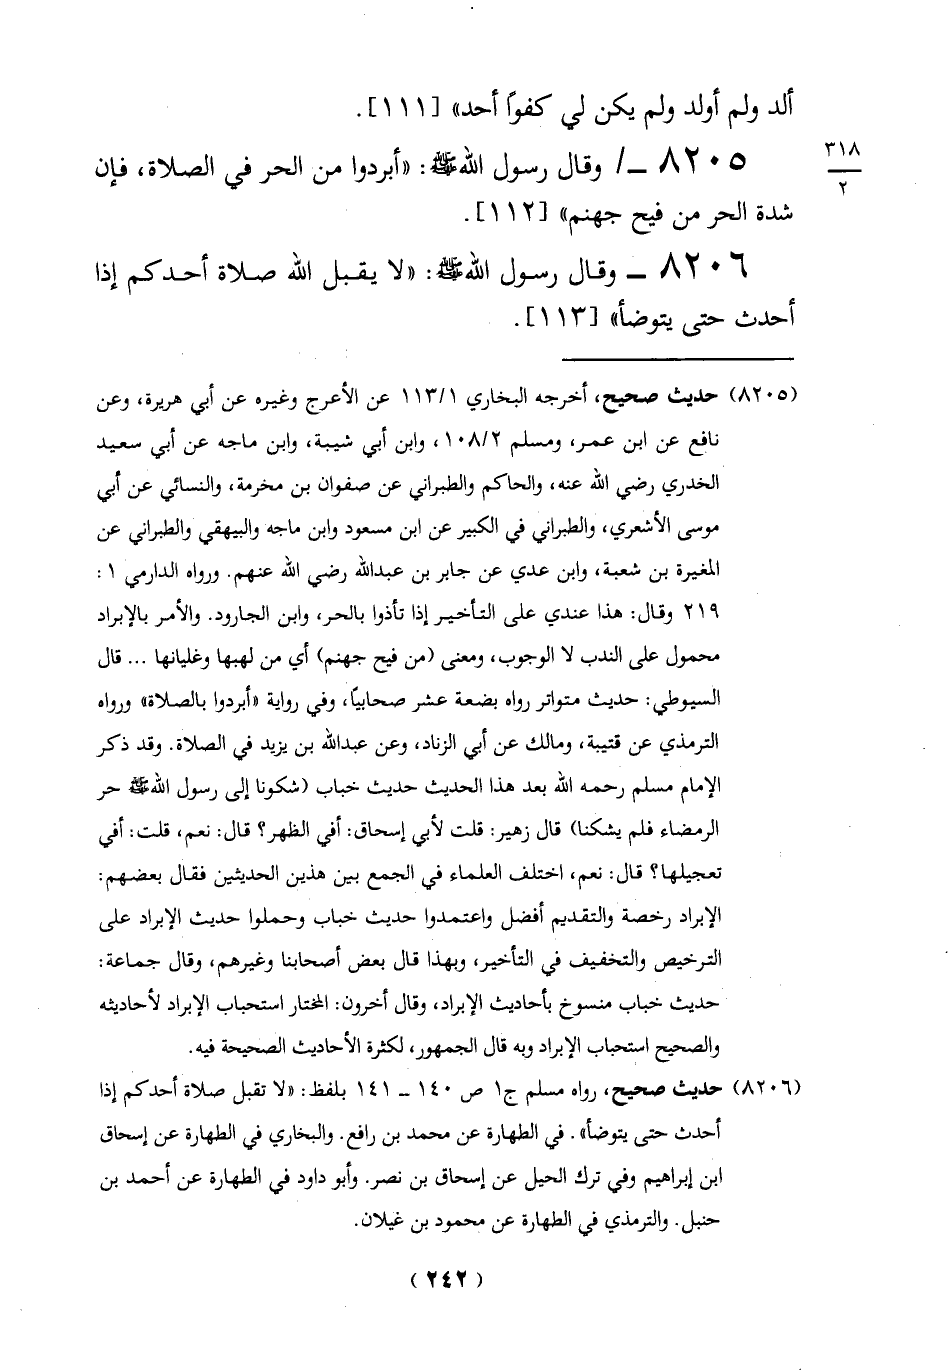 ألد ولم أولد ولم يكن لي كفوًا أحد» [١١١].
٣١٨
٢
٨٢٠٥ ــ/ وقال رسول اللهﷺ: «أبردوا من الحر في الصلاة، فإن
شدة الحر من فيح جهنم» [١١٢].
٨٢٠٦ ــ وقال رسول اللهﷺ: «لا يقبل الله صلاة أحدكم إذا
أحدث حتى يتوضأ» [١١٣].
(٨٢٠٥) حديث صحيح، أخرجه البخاري ١١٣/١ عن الأعرج وغيره عن أبي هريرة، وعن
نافع عن ابن عمر، ومسلم ١٠٨/٢، وابن أبي شيبة، وابن ماجه عن أبي سعيد
الخدري رضي الله عنه، والحاكم والطبراني عن صفوان بن مخرمة، والنسائي عن أبي
موسى الأشعري، والطبراني في الكبير عن ابن مسعود وابن ماجه والبيهقي والطبراني عن
المغيرة بن شعبة، وابن عدي عن جابر بن عبدالله رضي الله عنهم. ورواه الدارمي ١ :
٢١٩ وقال: هذا عندي على التأخير إذا تأذوا بالحر، وابن الجارود. والأمر بالإبراد
محمول على الندب لا الوجوب، ومعنى (من فيح جهنم) أي من لهبها وغليانها ... قال
السيوطي: حديث متواتر رواه بضعة عشر صحابيًا، وفي رواية «أبردوا بالصلاة» ورواه
الترمذي عن قتيبة، ومالك عن أبي الزناد، وعن عبدالله بن يزيد في الصلاة. وقد ذكر
الإمام مسلم رحمه الله بعد هذا الحديث حديث خباب (شكونا إلى رسول اللهﷺ حر
الرمضاء فلم يشكنا) قال زهير: قلت لأبي إسحاق: أفي الظهر؟ قال: نعم، قلت: أفي
تعجيلها؟ قال: نعم، اختلف العلماء في الجمع بين هذين الحديثين فقال بعضهم:
الإبراد رخصة والتقديم أفضل واعتمدوا حديث خباب وحملوا حديث الإبراد على
الترخيص والتخفيف في التأخير، وبهذا قال بعض أصحابنا وغيرهم، وقال جماعة:
حديث خباب منسوخ بأحاديث الإبراد، وقال أخرون: المختار استحباب الإبراد لأحاديثه
والصحيح استحباب الإبراد وبه قال الجمهور، لكثرة الأحاديث الصحيحة فيه.
(٨٢٠٦) حديث صحيح، رواه مسلم ج١ ص ١٤٠ ــ ١٤١ بلفظ: «لا تقبل صلاة أحدكم إذا
أحدث حتى يتوضأ». في الطهارة عن محمد بن رافع. والبخاري في الطهارة عن إسحاق
ابن إبراهيم وفي ترك الحيل عن إسحاق بن نصر. وأبو داود في الطهارة عن أحمد بن
حنبل. والترمذي في الطهارة عن محمود بن غيلان.
(٢٤٢)